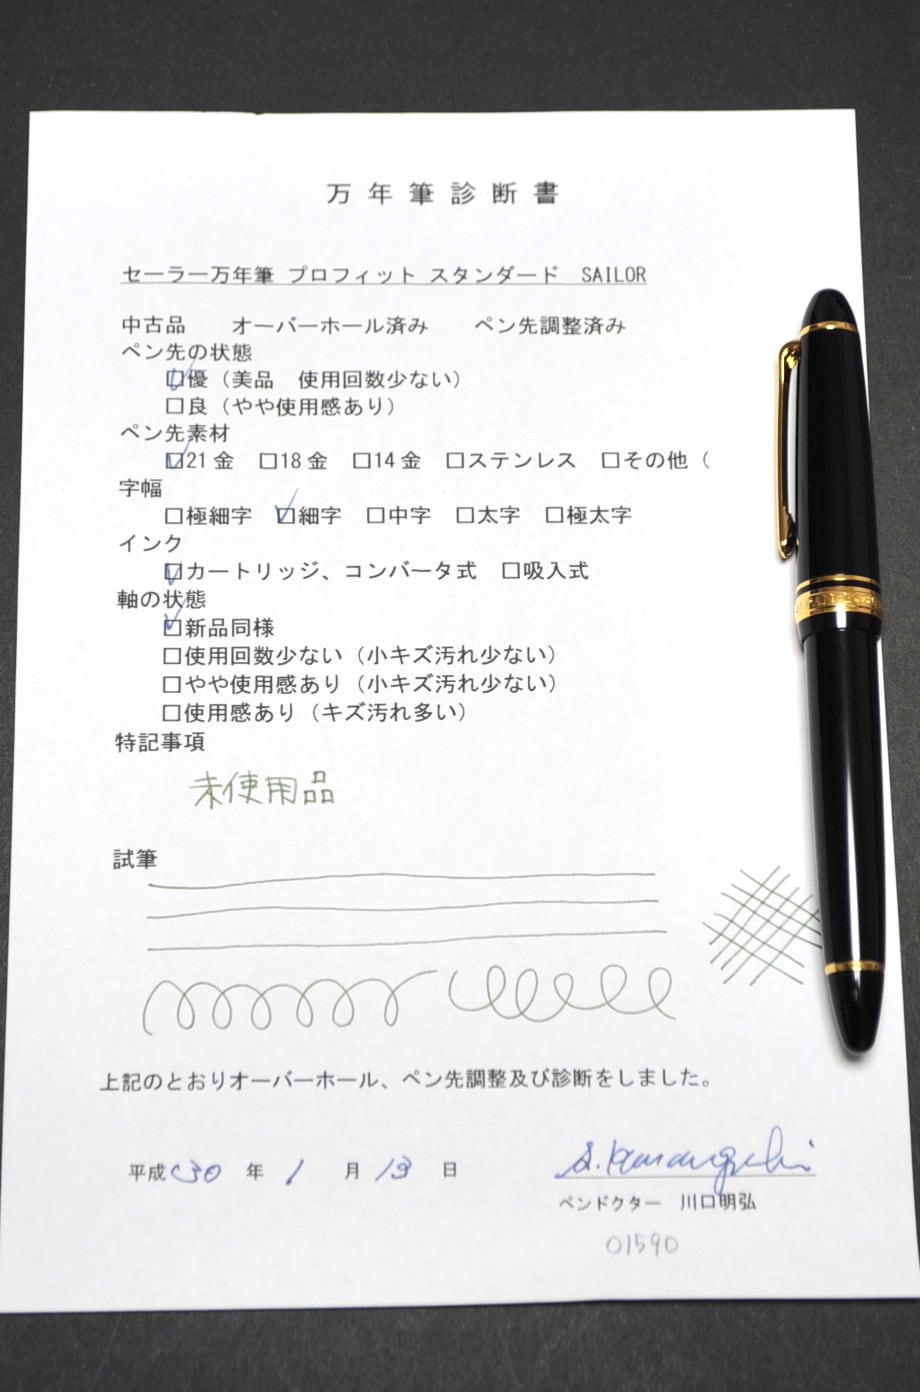 万年筆診断書
セーラー万年筆 プロフィット スタンダード SAILOR
中古品 オーバーホール済み ペン先調整済み
ペン先の状態
☑優（美品 使用回数少ない）
□良（やや使用感あり）
ペン先素材
☑21金 □18金 □14金 □ステンレス □その他（
字幅
□極細字 ☑細字 □中字 □太字 □極太字
インク
☑カートリッジ、コンバータ式 □吸入式
軸の状態
☑新品同様
□使用回数少ない（小キズ汚れ少ない）
□やや使用感あり（小キズ汚れ少ない）
□使用感あり（キズ汚れ多い）
特記事項
未使用品
試筆
上記のとおりオーバーホール、ペン先調整及び診断をしました。
平成30年1月13日
ペンドクター 川口明弘
01590